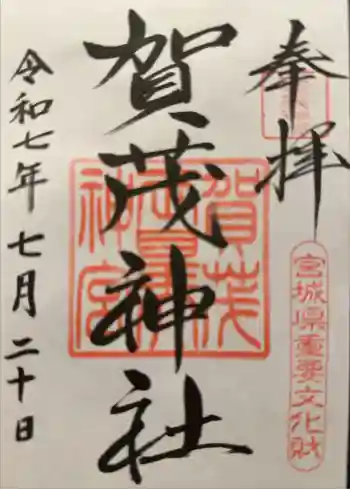 奉拝
宮城県重要文化財
賀茂神社
賀茂
神宮
令和七年七月二十日